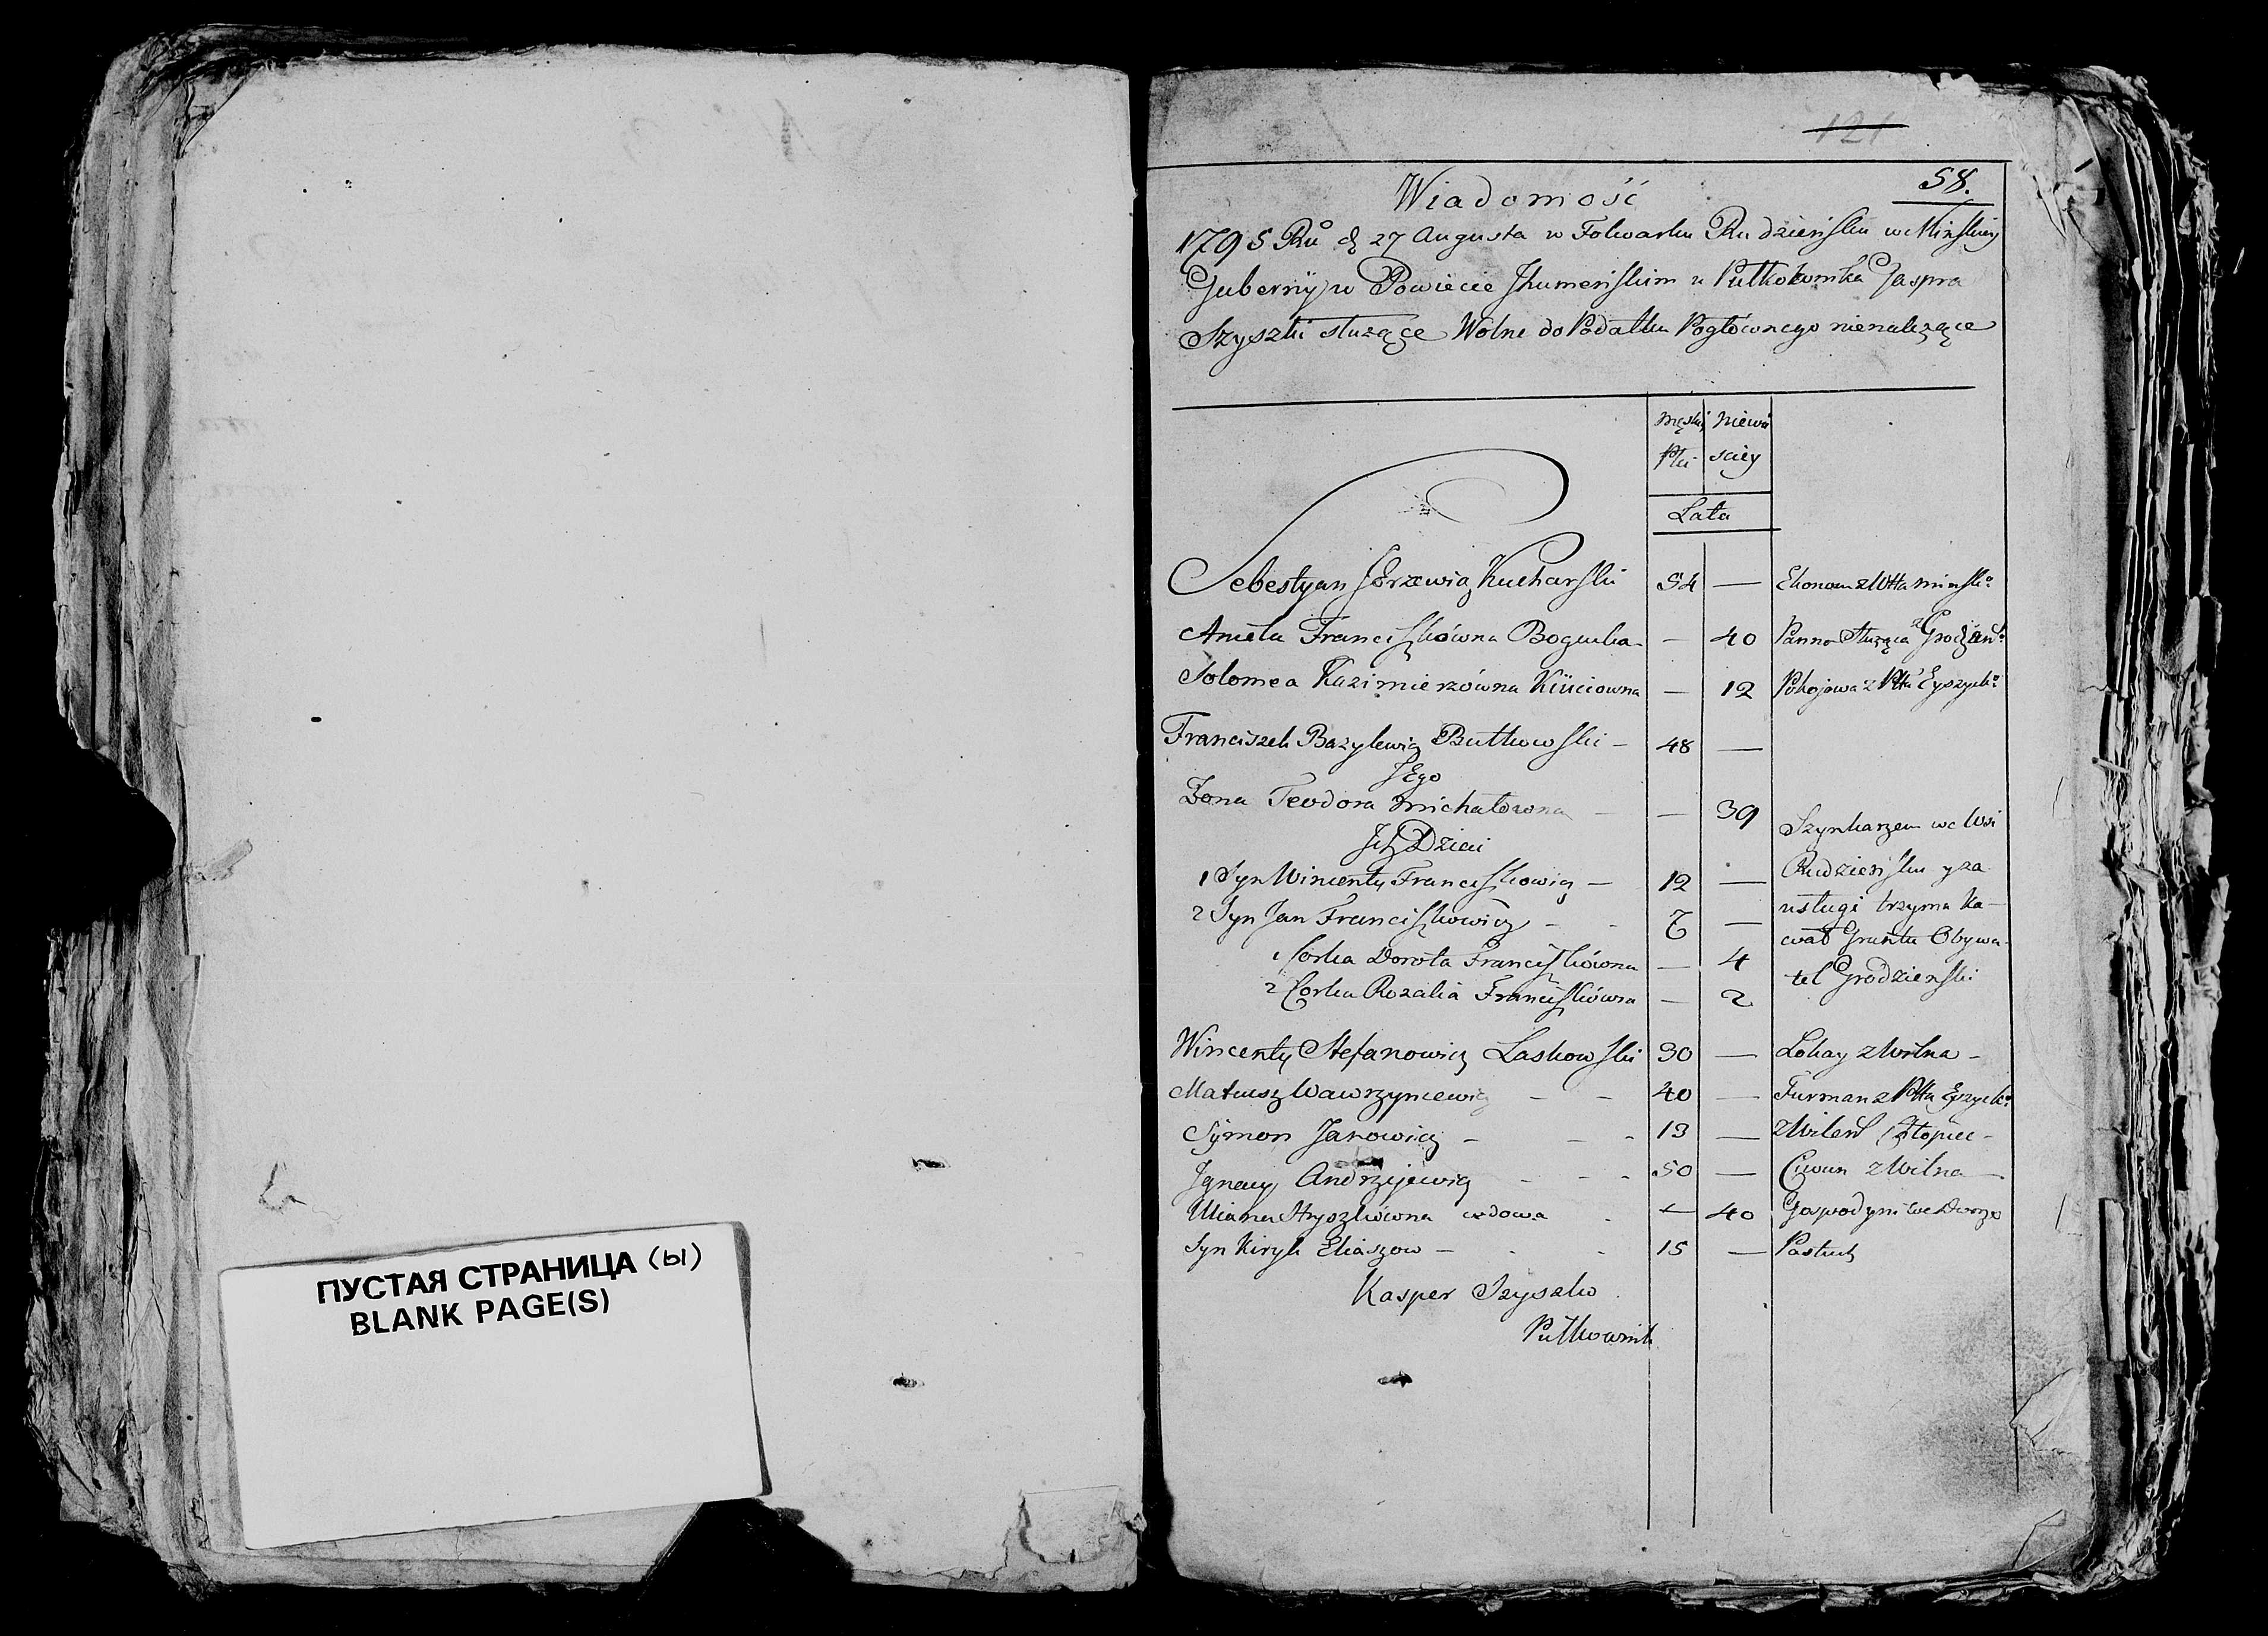 ПУСТАЯ СТРАНИЦА (ы)
BLANK PAGE(S)
121
58.
Wiadomość
1795 Ru d 27 Augusta w Folwarku Rudzieńsku w Minskiey
Gubernÿ w Powiecie Jhumeńskim u Pułkownika Gaspra
Szyszki słuzące Wolne do Podatku Pogłównego nienalezące
męskiey Niewie
Płci sciey
Lata
Sebestyan Kucharski 54 — Ekonom z Wtta minsk:
Aniela Franciszkówna Bogucka — 40 Panna słuząca z Grodzień:
Solomea Kazimierzówna — 12 Pokojowa z Pttu Eyszysk:
Franciszek Bazylewicz Butkowski — 48 —
JEgo
Zona Teodora michałowna — — 39
Szynkarzem we Wsi
Jch Dzieci
1 Syn Wincenty Franciszkowicz — 12 — Rudzieńsku y za
2 Syn Jan Franciszkowicz - - 7 — usługi trzyma ka-
1 Corka Dorota Franciszkówna — 4 wał Gruntu Obywa-
2 Corka Rozalia Franciszkówna — 2 tel Grodzieński
Wincenty Stefanowicz Laskowski 30 — Lokay z Wilna -
Mateusz Wawrzyncewicz — — 40 — Furman z Pttu Eyszysk:
Symon Janowicz - - - 13 — z Wilna Chłopiec -
Jgnacy Andrzijewicz - - - 50 — Ciwun z Wilna —
Uliana Hryszkówna wdowa - — 40 Gospodyni we Dworze
Syn Kiryk Eliaszow — - - 15 — Pastuch
Kasper Szyszko
Pułkownik